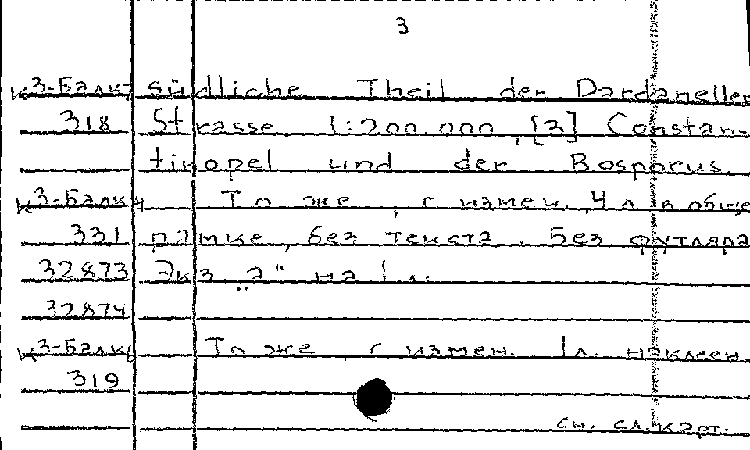 3
к3-Балк südliche Theil der Dardanellen
318 Strasse 1:200.000, [3] Constan-
tinopel und der Bosporus.
к3-Балк То же, с измен. 4 л в общей
331 рамке, без текста. Без футляра
32873 Экз. "а" на 1 л.
32874
к3-Балк То же с измен. 1 л. наклеен.
319
см. сл. карт.